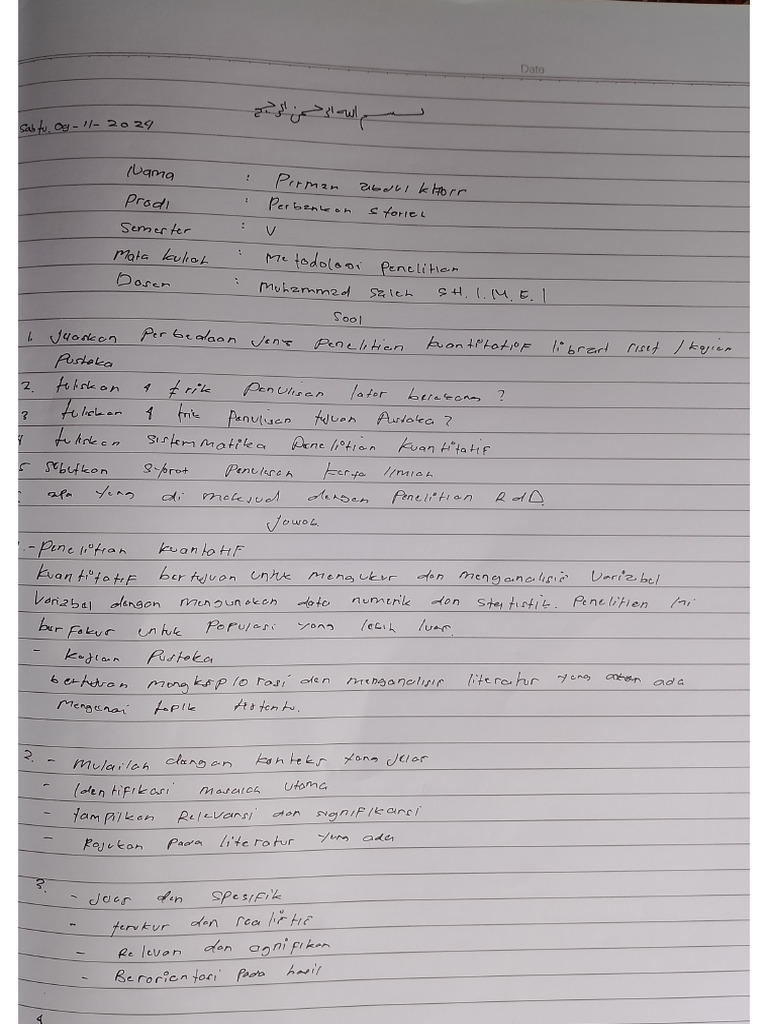 Date
بسم الله الرحمن الرحيم
Sabtu, 09-11-2024
Nama : Pirman abdul khoir
Prodi : Perbankan Syariah
Semester : V
Mata kuliah : Metodologi Penelitian
Dosen : Muhammad Saleh SH.I.M.E.I
Soal
1. Jelaskan Perbedaan jenis Penelitian kuantitatif librart riset / kajian
Pustaka
2. tuliskan 4 trik Penulisan latar belakang ?
3 tuliskan 4 trik Penulisan tujuan Pustaka ?
4 tuliskan sistemmatika Penelitian kuantitatif
5 sebutkan Penulisan karya ilmiah
apa yang di maksud dengan Penelitian R&D.
Jawab
1.- Penelitian kuantatif
kuantitatif bertujuan untuk mengukur dan menganalisis Variabel
Variabel dengan mengunakan data numerik dan statistik. Penelitian ini
berfokus untuk Populasi yang lebih luas.
- kajian Pustaka
bertujuan mengksplorasi dan menganalisis literatur yang ada
mengenai topik tertentu.
2. - Mulailah dengan konteks yang jelas
- Identifikasi masalah utama
- tampilkan Relevansi dan signifikansi
- Rajukan pada literatur yang ada
3. - Jelas dan spesifik
- terukur dan realistis
- Relevan dan signifikan
- Berorientasi pada hasil
4